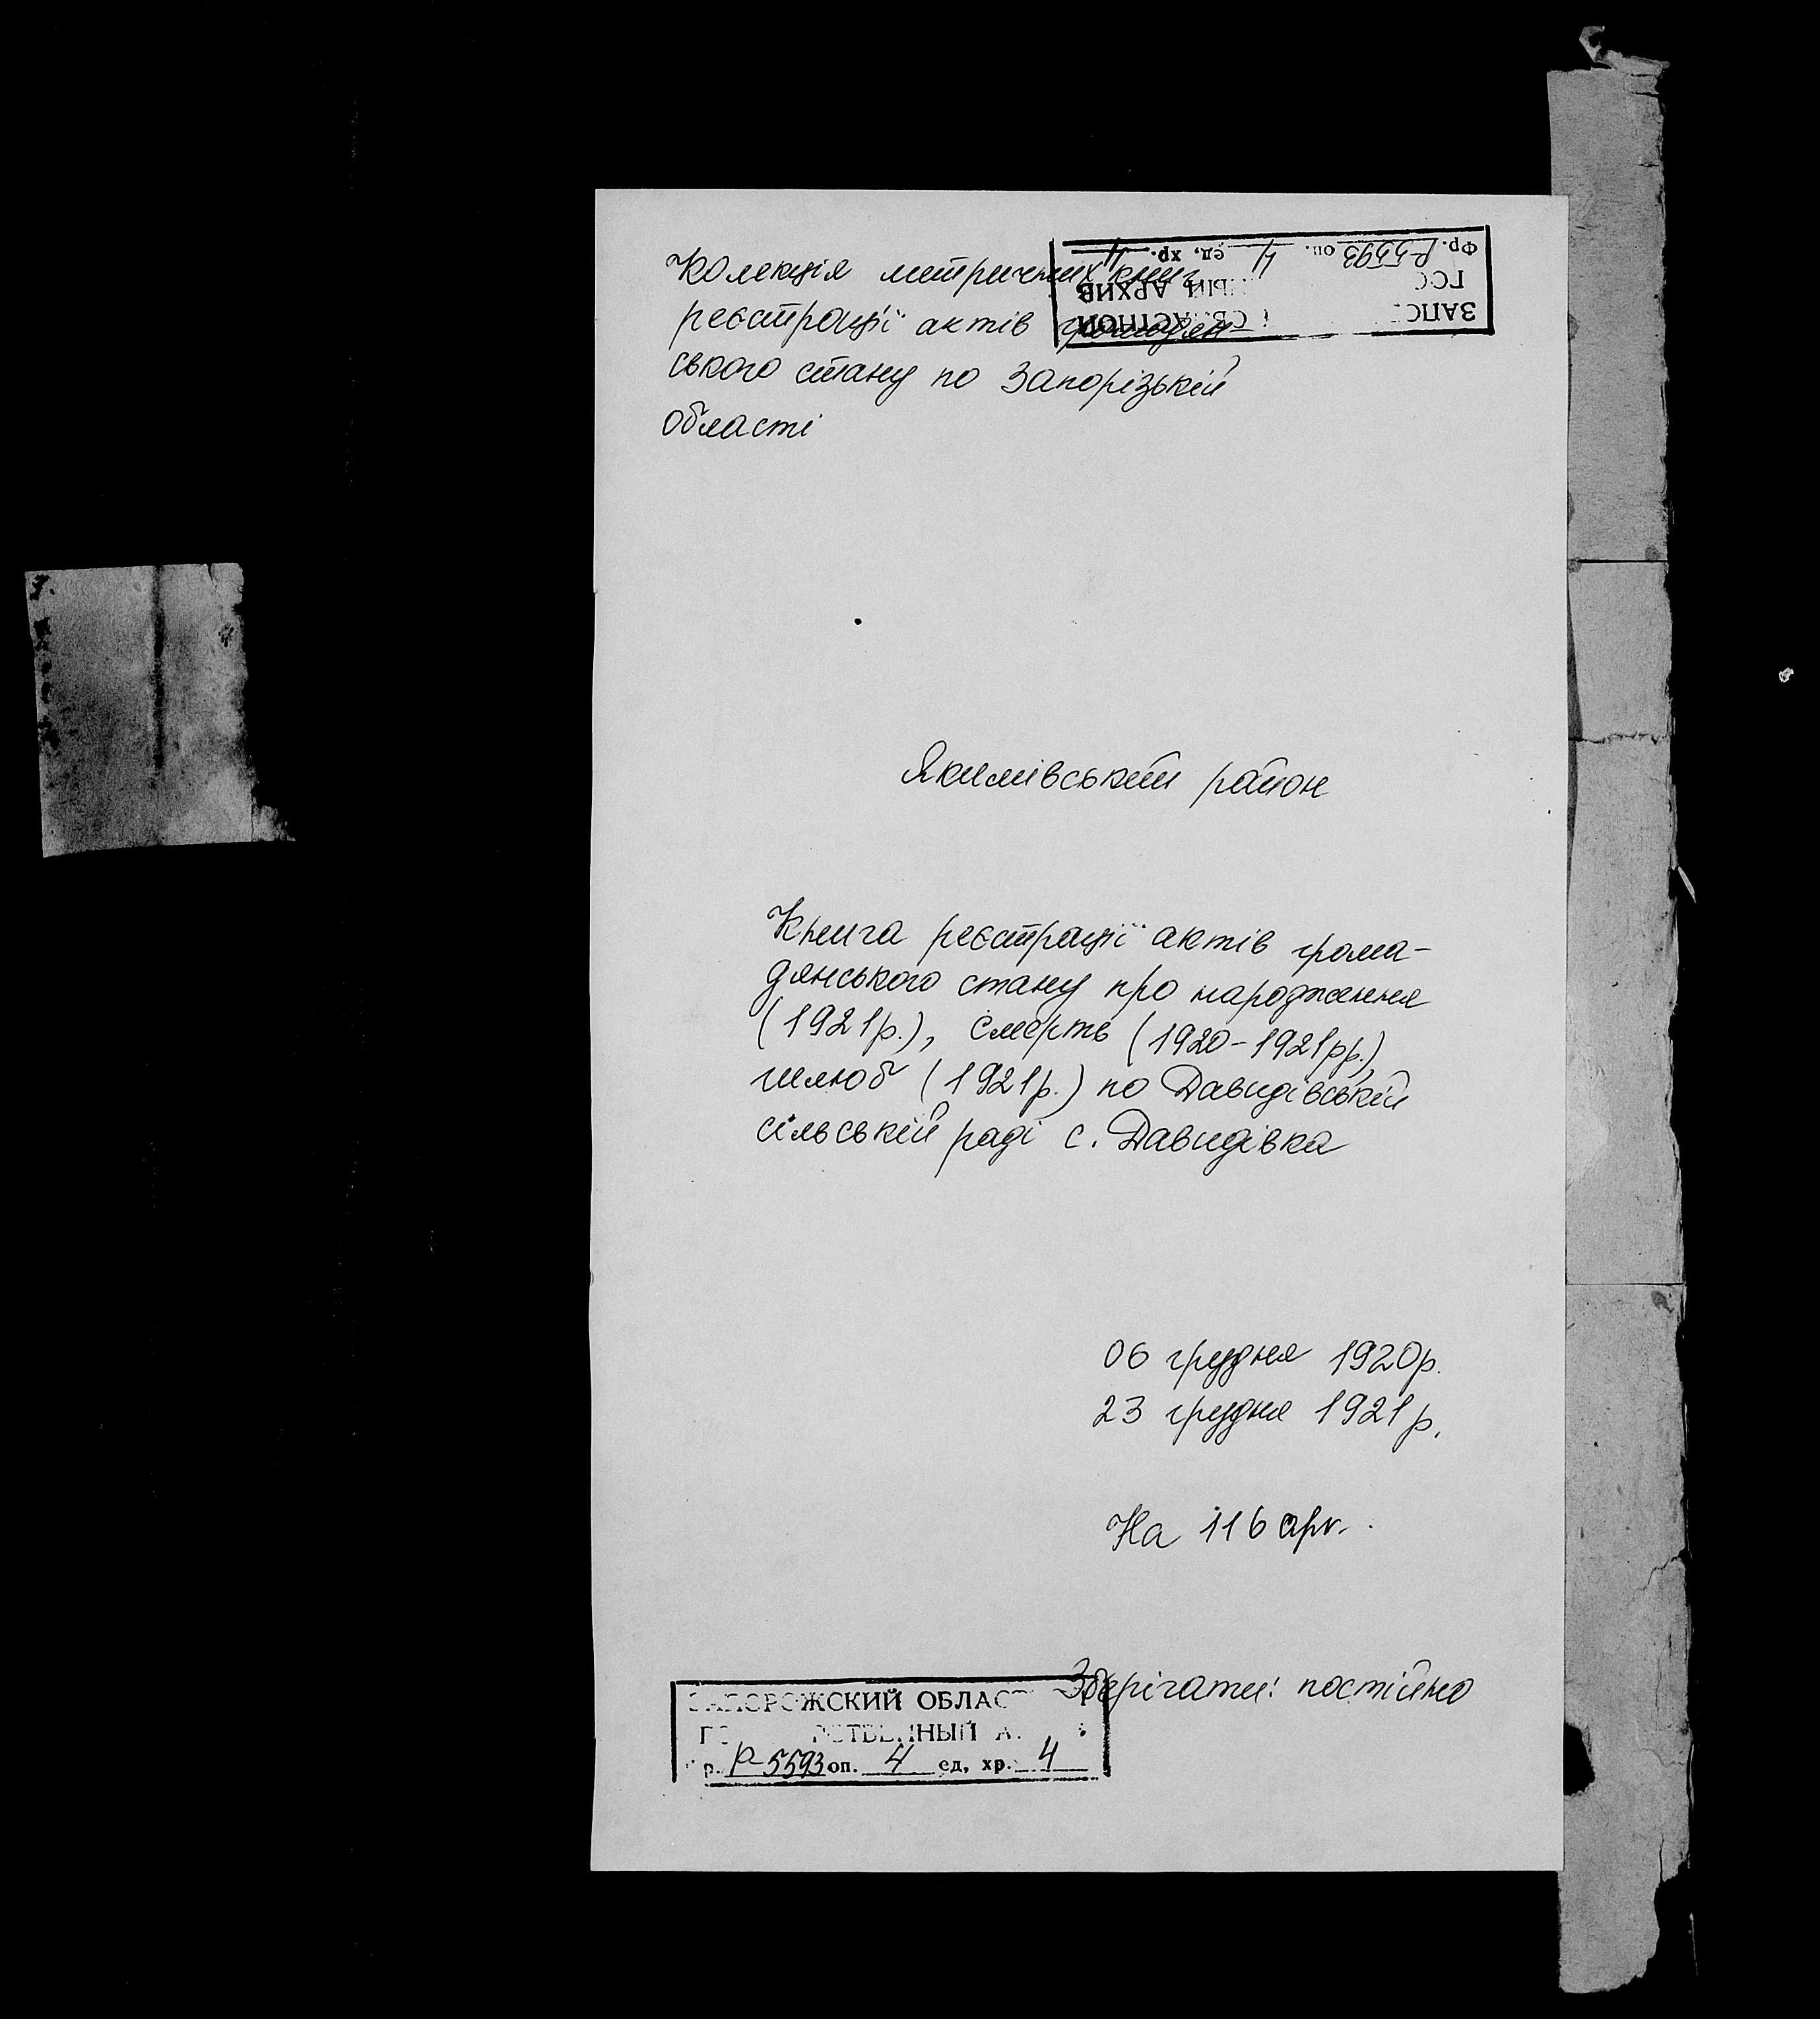 Колекція метричних книг
реєстрації актів громадян-
ського стану по Запорізькій
області
Фр. Р-5593 оп. 4 ед, хр. 4
Якимівський район
Книга реєстрації актів грома-
дянського стану про народження
(1921р.), смерть (1920-1921рр.),
шлюб (1921р.) по Давидівській
сільській раді с. Давидівка
06 грудня 1920р.
23 грудня 1921р.
На 116 арк.
Зберігати: постійно
ЗАПОРОЖСКИЙ ОБЛАСТ
р. Р-5593 оп. 4 ед, хр. 4